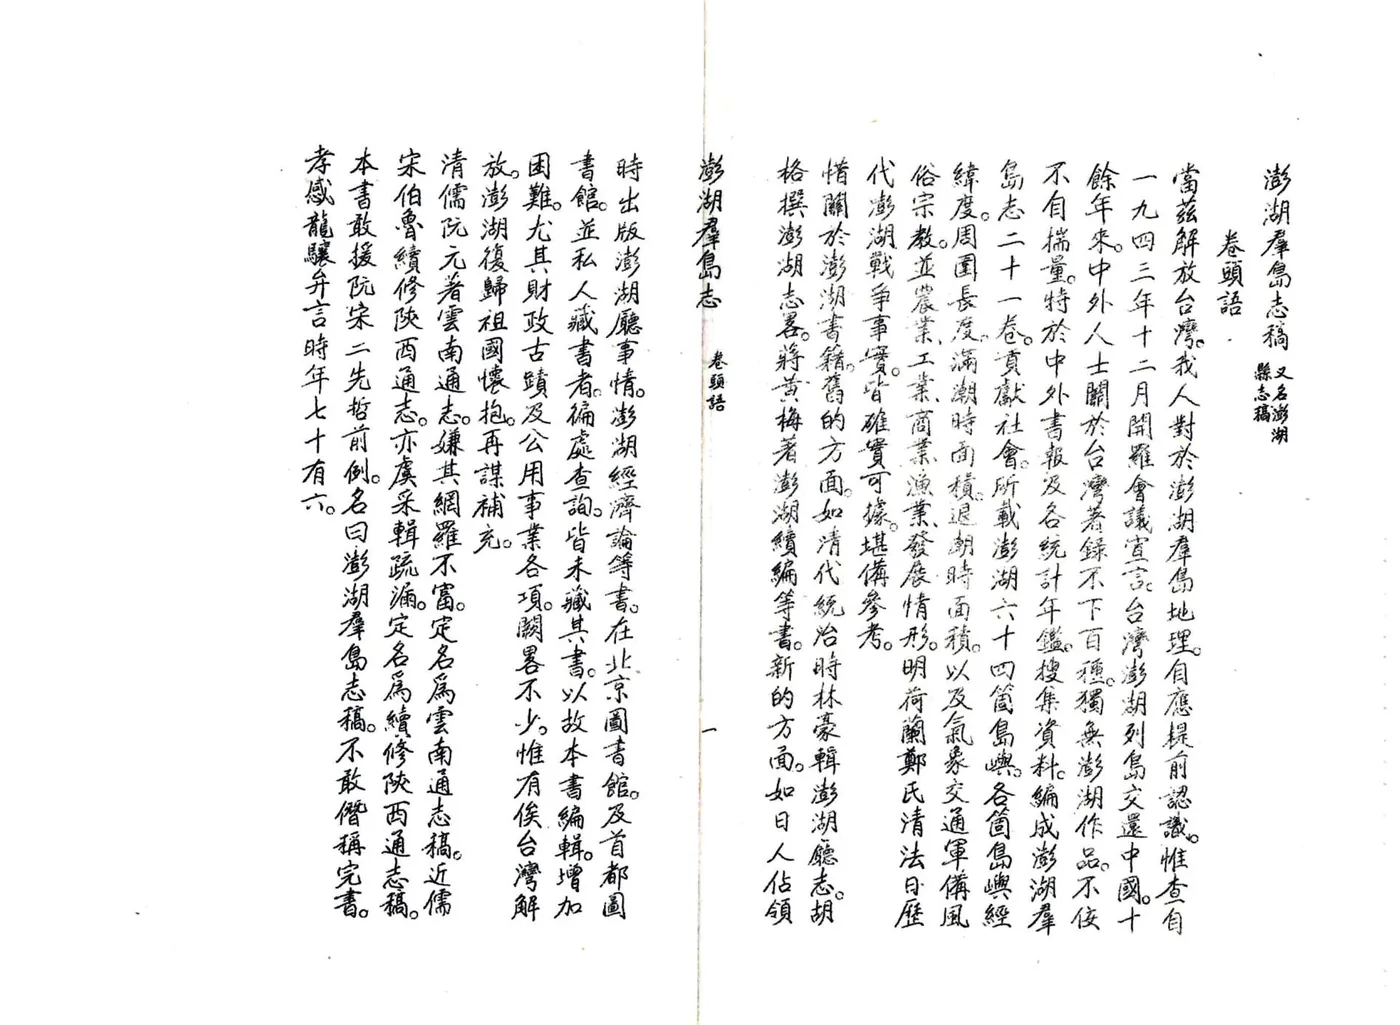 澎湖羣島志稿 又名澎湖
縣志稿
卷頭語
當茲解放台灣。我人對於澎湖羣島地理。自應提前認識。惟查自
一九四三年十二月開羅會議宣言。台灣澎湖列島交還中國。十
餘年來。中外人士關於台灣著錄不下百種。獨無澎湖作品。不佞
不自揣量。特於中外書報及各統計年鑑。搜集資料。編成澎湖羣
島志二十一卷。貢獻社會。所載澎湖六十四箇島嶼。各箇島嶼經
緯度。周圍長度。滿潮時面積。退潮時面積。以及氣象交通軍備風
俗宗教。並農業、工業、商業、漁業、發展情形。明荷蘭鄭氏清法日歷
代澎湖戰爭事實。皆確實可據。堪備參考。
惜關於澎湖書籍。舊的方面。如清代統治時林豪輯澎湖廳志。胡
格撰澎湖志畧。蔣黃梅著澎湖續編等書。新的方面。如日人佔領
澎湖羣島志 卷頭語 一
時出版澎湖廳事情。澎湖經濟論等書。在北京圖書館。及首都圖
書館。並私人藏書者。徧處查詢。皆未藏其書。以故本書編輯。增加
困難。尤其財政古蹟及公用事業各項。闕畧不少。惟有俟台灣解
放。澎湖復歸祖國懷抱。再謀補充。
清儒阮元著雲南通志。嫌其網羅不富。定名爲雲南通志稿。近儒
宋伯魯續修陝西通志。亦虞采輯疏漏。定名爲續修陝西通志稿。
本書敢援阮宋二先哲前例。名曰澎湖羣島志稿。不敢僭稱完書。
孝感龍驤弁言時年七十有六。